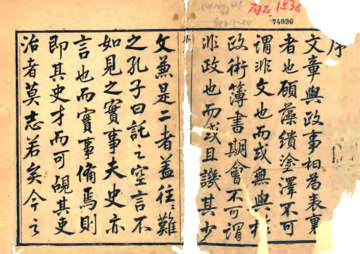 句五 1536
74936
序
文章與政事相為表裏
者也顧藻繢塗澤不可
謂非文也而或無與於
政術簿書期會不可謂
非政也而或且譏其少
序
文兼是二者蓋往往難
之孔子曰託之空言不
如見之實事夫史亦
言也而實事備焉則
即其史才而可覘其吏
治者莫志若矣今之